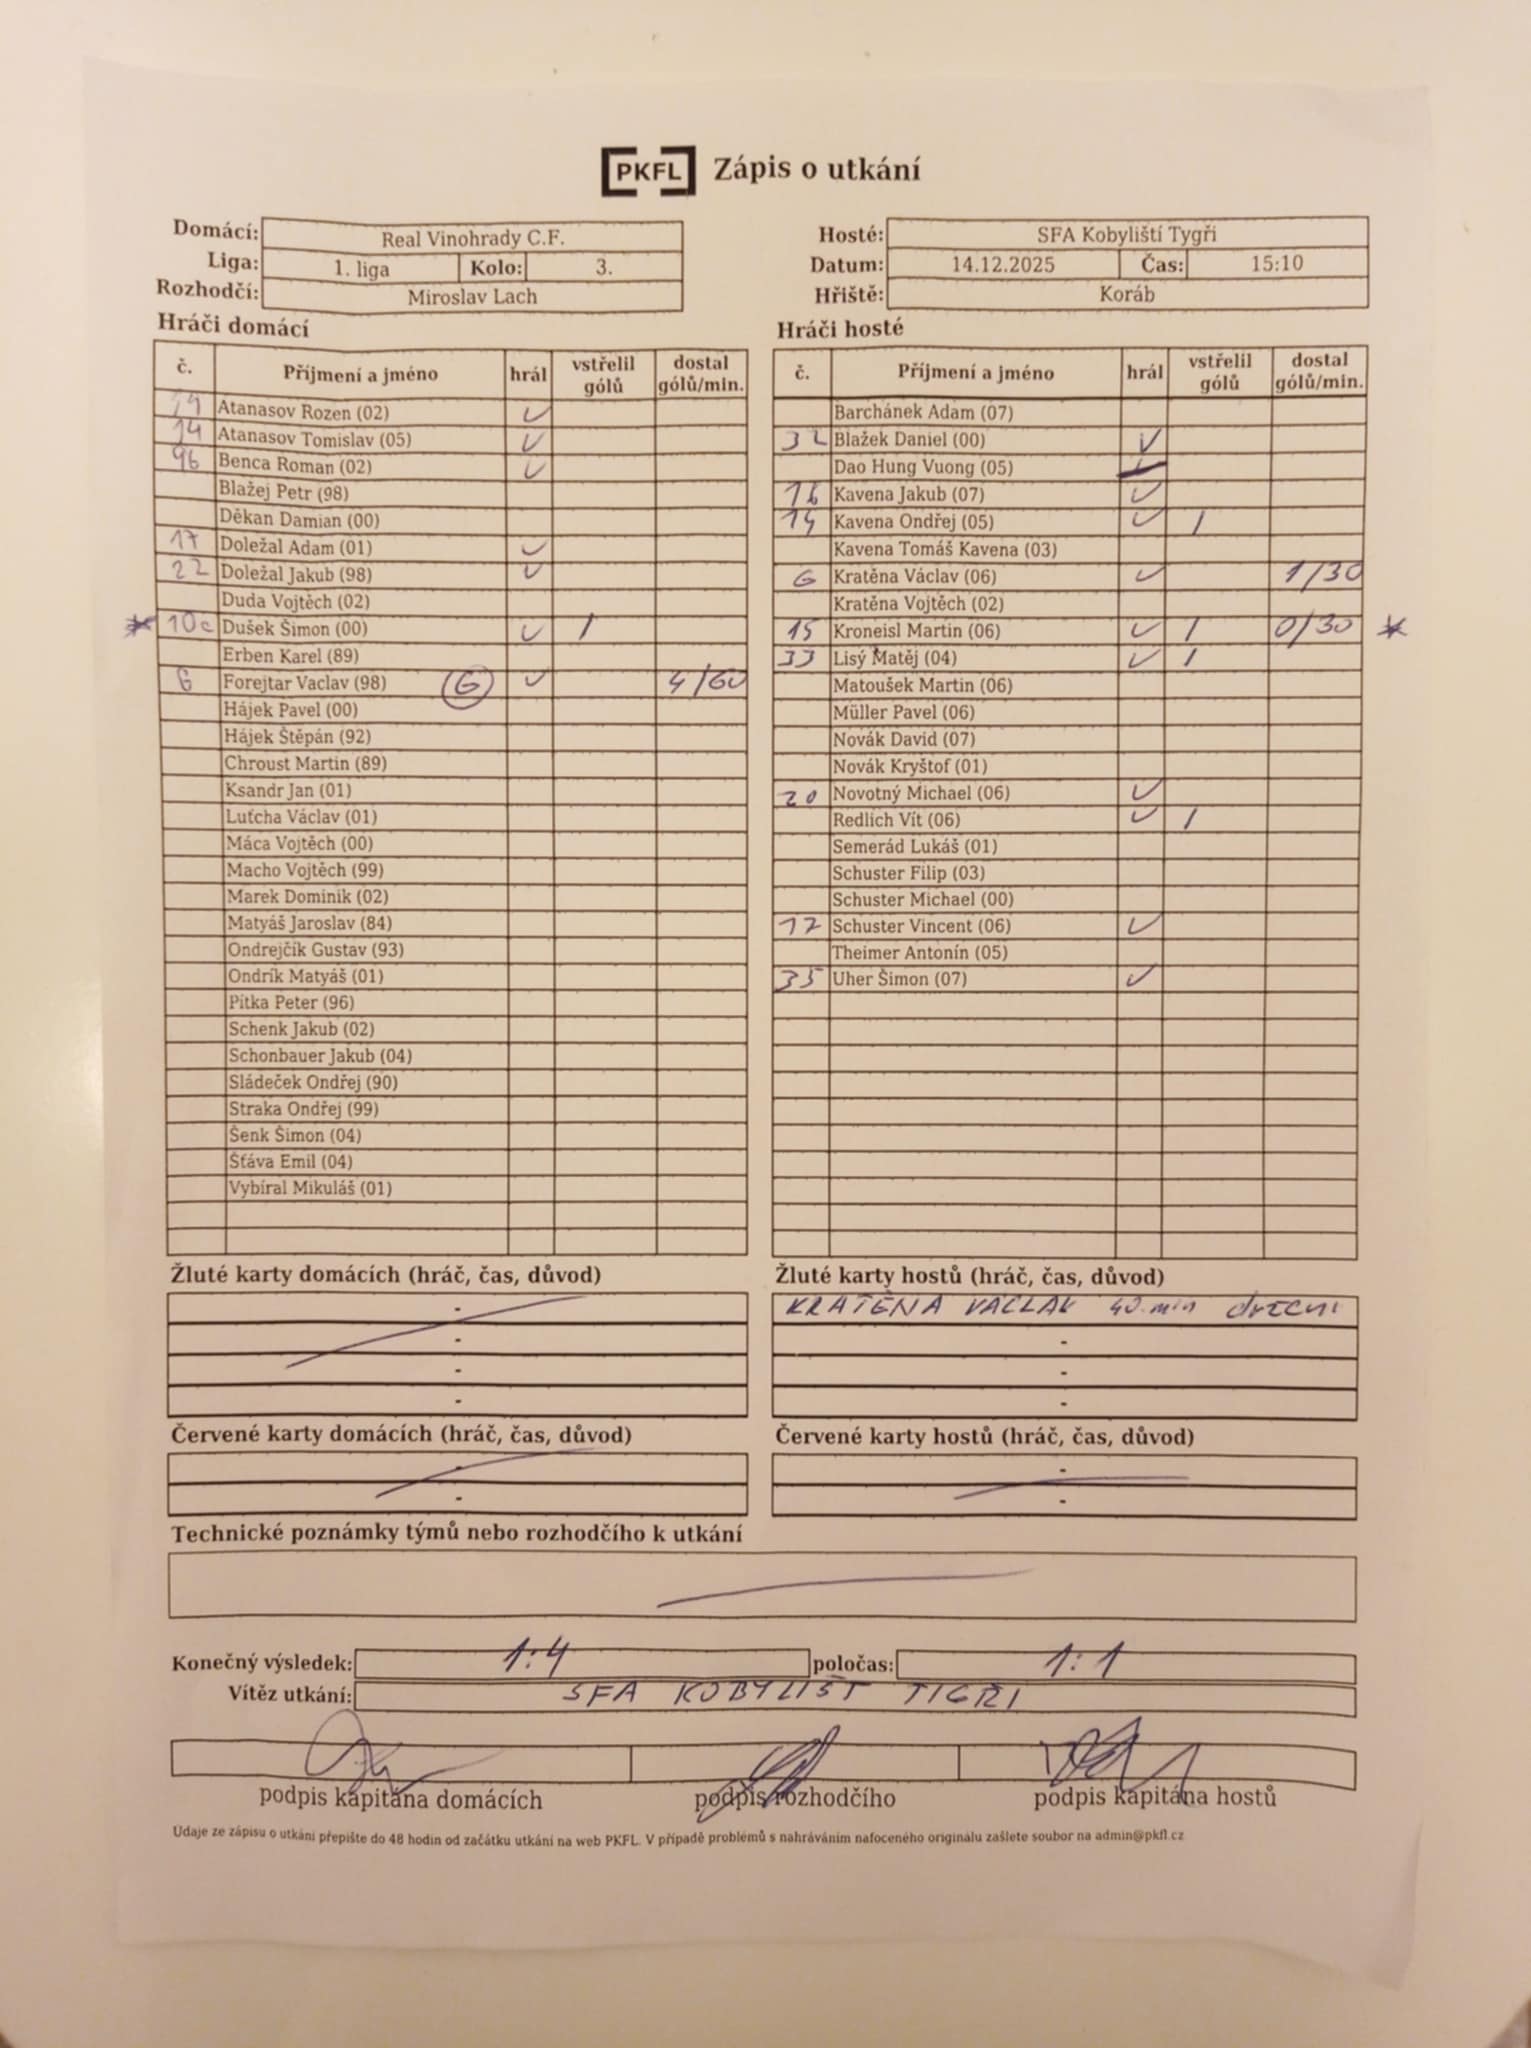 PKFL Zápis o utkání
Domácí: Real Vinohrady C.F. Hosté: SFA Kobyliští Tygři
Liga: 1. liga Kolo: 3. Datum: 14.12.2025 Čas: 15:10
Rozhodčí: Miroslav Lach Hřiště: Koráb
Hráči domácí
č. Příjmení a jméno hrál vstřelil gólů dostal gólů/min.
Atanasov Rozen (02) ✓
14 Atanasov Tomislav (05) ✓
96 Benca Roman (02) ✓
Blažej Petr (98)
Děkan Damian (00)
17 Doležal Adam (01) ✓
22 Doležal Jakub (98) ✓
Duda Vojtěch (02)
* 10c Dušek Šimon (00) ✓ /
Erben Karel (89)
6 Forejtar Vaclav (98) G ✓ 4/60
Hájek Pavel (00)
Hájek Štěpán (92)
Chroust Martin (89)
Ksandr Jan (01)
Luťcha Václav (01)
Máca Vojtěch (00)
Macho Vojtěch (99)
Marek Dominik (02)
Matyáš Jaroslav (84)
Ondrejčík Gustav (93)
Ondrík Matyáš (01)
Pitka Peter (96)
Schenk Jakub (02)
Schonbauer Jakub (04)
Sládeček Ondřej (90)
Straka Ondřej (99)
Šenk Šimon (04)
Šťáva Emil (04)
Vybíral Mikuláš (01)
Hráči hosté
č. Příjmení a jméno hrál vstřelil gólů dostal gólů/min.
Barchánek Adam (07)
32 Blažek Daniel (00) ✓
Dao Hung Vuong (05)
16 Kavena Jakub (07) ✓
14 Kavena Ondřej (05) ✓ /
Kavena Tomáš Kavena (03)
6 Kratěna Václav (06) ✓ 1/30
Kratěna Vojtěch (02)
15 Kroneisl Martin (06) ✓ / 0/30 *
33 Lisý Matěj (04) ✓ /
Matoušek Martin (06)
Müller Pavel (06)
Novák David (07)
Novák Kryštof (01)
20 Novotný Michael (06) ✓
Redlich Vít (06) ✓ /
Semerád Lukáš (01)
Schuster Filip (03)
Schuster Michael (00)
17 Schuster Vincent (06) ✓
Theimer Antonín (05)
35 Uher Šimon (07) ✓
Žluté karty domácích (hráč, čas, důvod)
-
-
-
-
Žluté karty hostů (hráč, čas, důvod)
KRATĚNA VÁCLAV 40.min držení
-
-
-
Červené karty domácích (hráč, čas, důvod)
-
-
Červené karty hostů (hráč, čas, důvod)
-
-
Technické poznámky týmů nebo rozhodčího k utkání
Konečný výsledek: 1:4 poločas: 1:1
Vítěz utkání: SFA KOBYLIŠT TIGŘI
podpis kapitána domácích podpis rozhodčího podpis kapitána hostů
Údaje ze zápisu o utkání přepište do 48 hodin od začátku utkání na web PKFL. V případě problémů s nahráváním nafoceného originálu zašlete soubor na admin@pkfl.cz